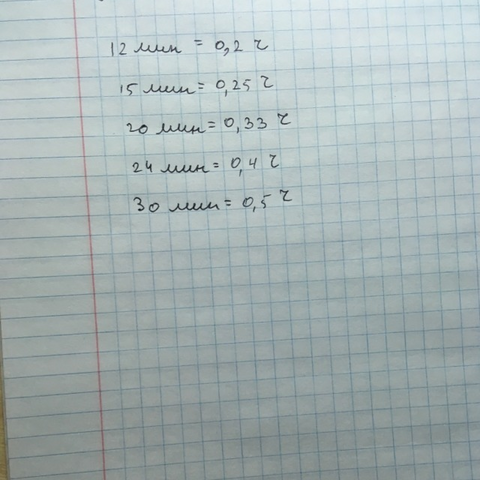 12 мин = 0,2 ч
15 мин = 0,25 ч
20 мин = 0,33 ч
24 мин = 0,4 ч
30 мин = 0,5 ч